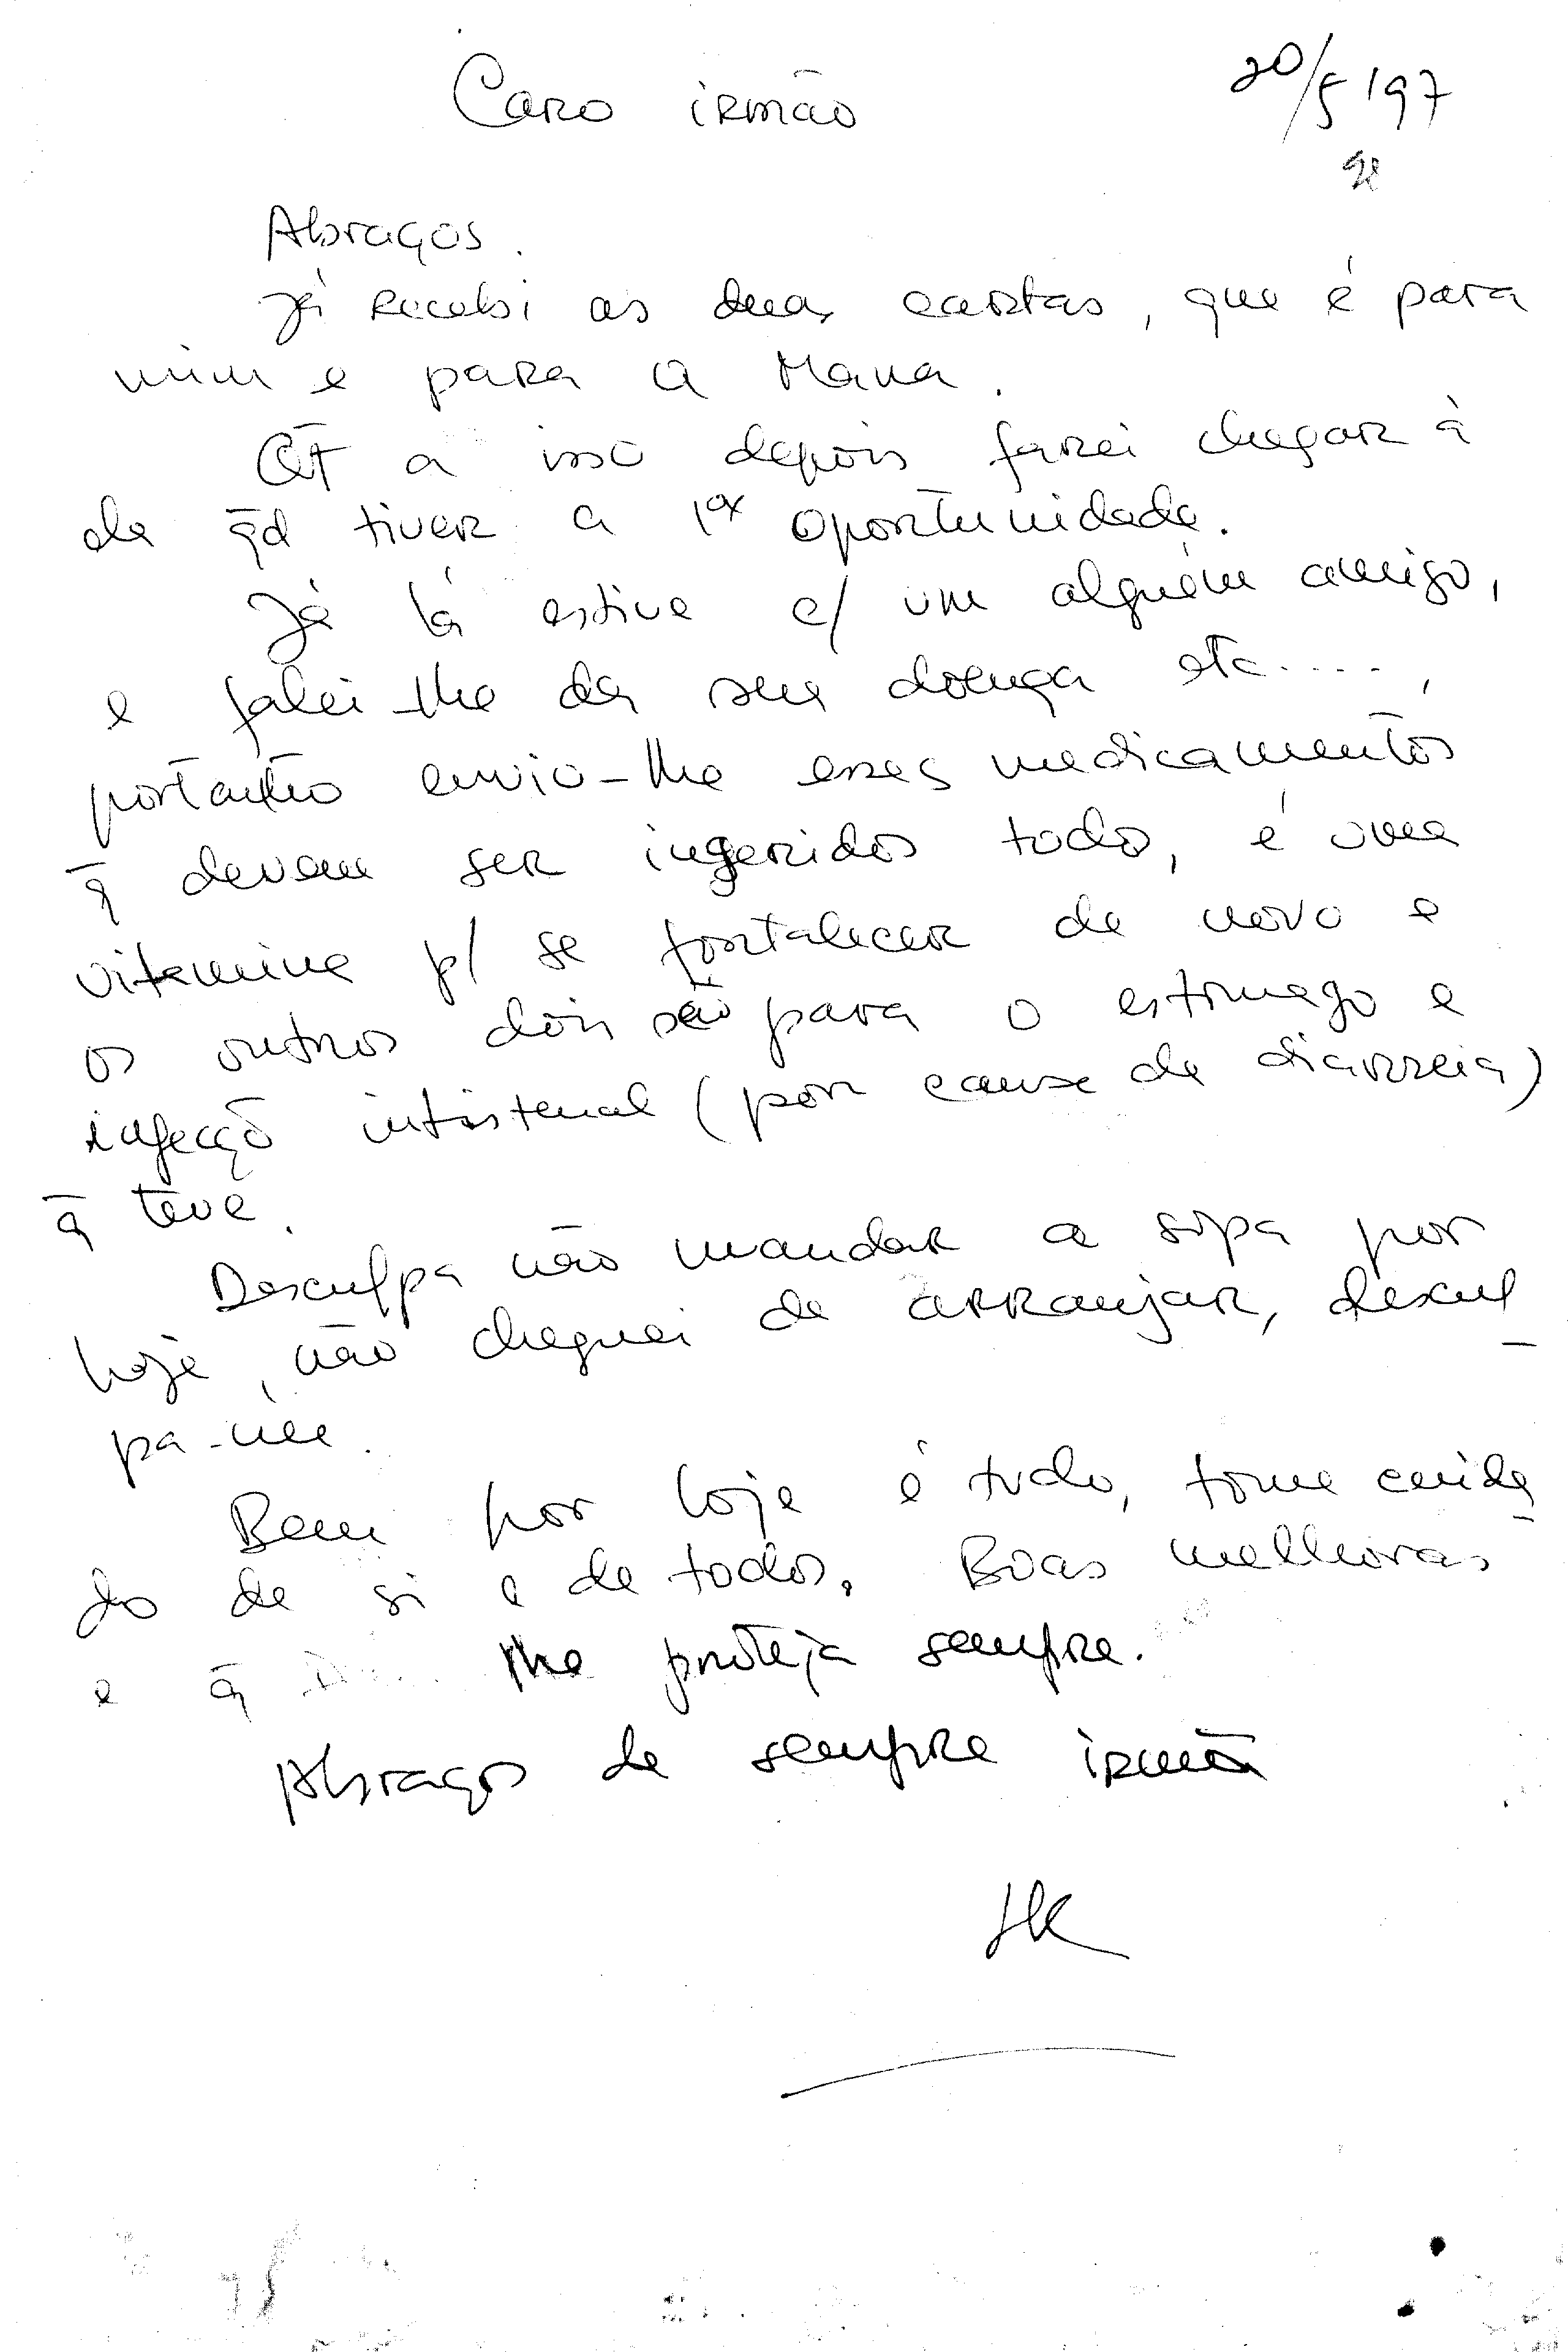 Caro irmão
20/5/97
Abraços.
Já recebi as duas cartas, que é para
mim e para a Mana.
Qt a isso depois farei chegar à
ela qd tiver a 1ª oportunidade.
Já lá estive c/ um alguém amigo,
e falei-lhe da sua doença etc....,
portanto envio-lhe esses medicamentos
q̄ devem ser ingeridos todo, é uma
vitamina p/ se fortalecer de novo e
os outros dois são para o estomago e
infecçõ intistenal (por causa da diarreia)
q̄ teve.
Desculpa não mandar a sopa por
hoje, não cheguei de arranjar, descul
pa-me.
Bem por hoje é tudo, tome cuida
do de si e de todos. Boas melhoras
e q̄ lhe proteja sempre.
Abraços de sempre irmã